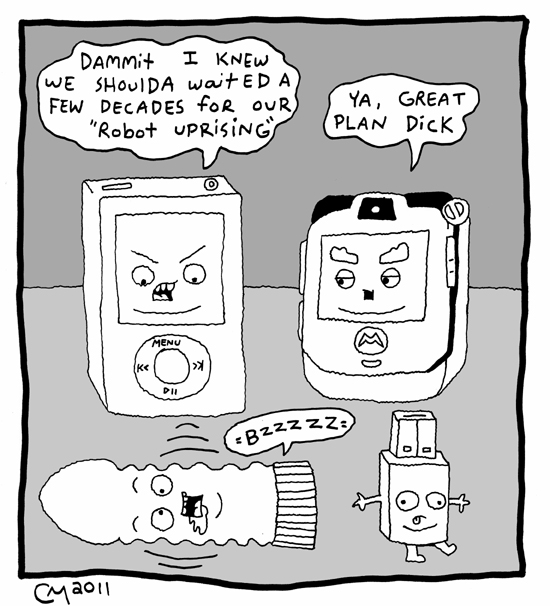 DAMMIT I KNEW
WE SHOULDA WAITED A
FEW DECADES FOR OUR
"ROBOT UPRISING"
YA, GREAT
PLAN DICK
MENU
=BZZZZZ=
CM2011